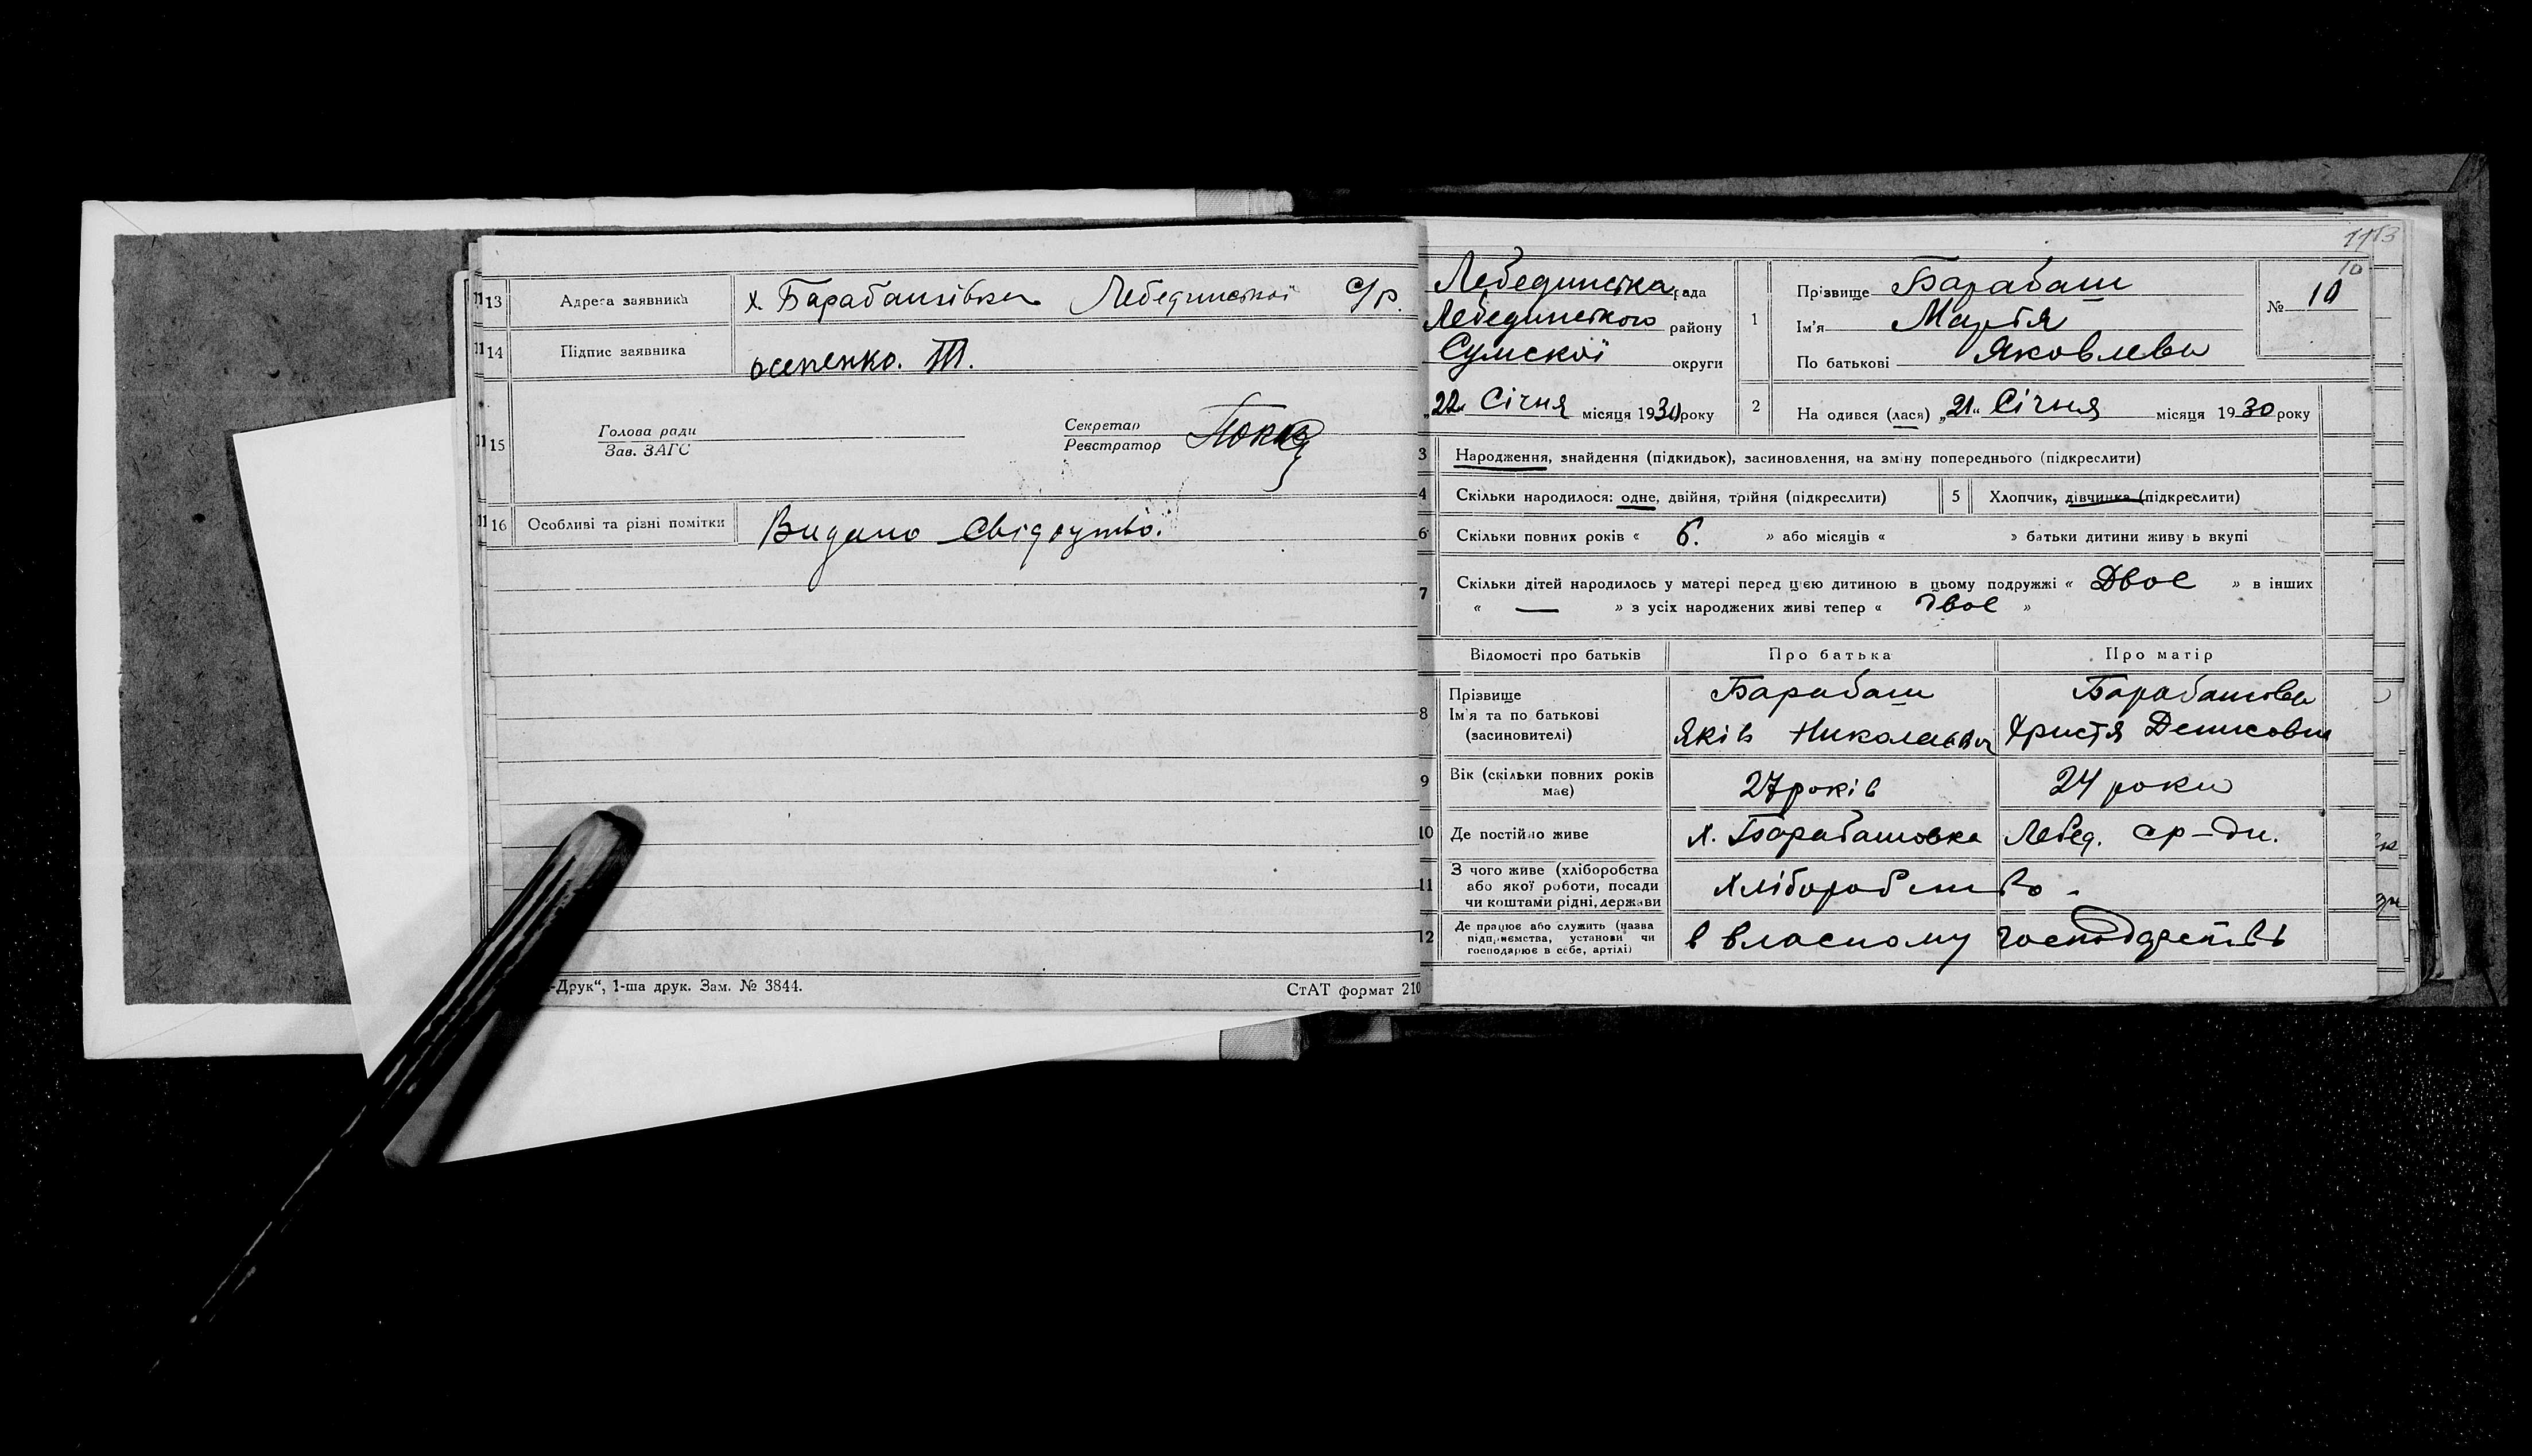 13 Адреса заявника х. Барабашівка Лебединської с/р.
14 Підпис заявника осепенко. Т.
15 Голова ради
Зав. ЗАГС
Секретар
Реєстратор
16 Особливі та різні помітки Видано свідоцтво.
-Друк“, 1-ша друк. Зам. № 3844. СтАТ формат 210
1113
10
Лебединська рада
Лебединського району
Сумської округи
„22„ Січня місяця 1930 року
1 Прізвище Барабаш
Ім'я Марфа
По батькові Яковлева
№ 10
2 На одився (лася) „21„ Січня місяця 1930 року
3 Народження, знайдення (підкидьок), засиновлення, на зміну попереднього (підкреслити)
4 Скільки народилося: одне, двійня, трійня (підкреслити) 5 Хлопчик, дівчинка (підкреслити)
6 Скільки повних років « 6. » або місяців « » батьки дитини живуть вкупі
7 Скільки дітей народилось у матері перед цією дитиною в цьому подружжі « Двоє » в інших
« — » з усіх народжених живі тепер « двоє »
Відомості про батьків Про батька Про матір
8 Прізвище Барабаш Барабашова
Ім'я та по батькові Яків Николаевич Христя Денисовна
(засновителі)
9 Вік (скільки повних років має) 27 років 24 роки
10 Де постійно живе х. Барабашовка Лебед. ср-ди.
11 З чого живе (хліборобства
або якої роботи, посади
чи коштами рідні, держави Хліборобство -
12 Де працює або служить (назва
підприємства, установи чи
господарює в себе, артілі) в власному господарстві